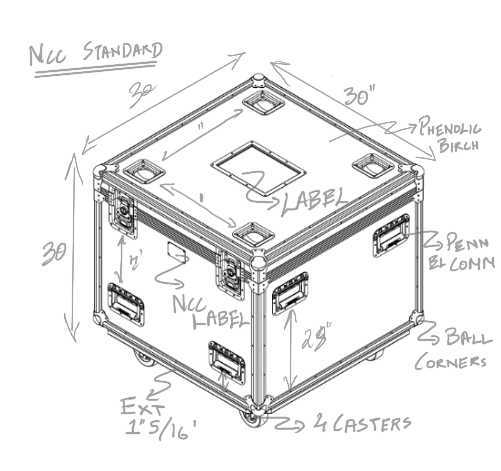 NCC STANDARD
30
30"
"
PHENOLIC
BIRCH
LABEL
"
PENN
ELCOMM
30
NCC
LABEL
28"
BALL
CORNERS
EXT
1" 5/16'
4 CASTERS